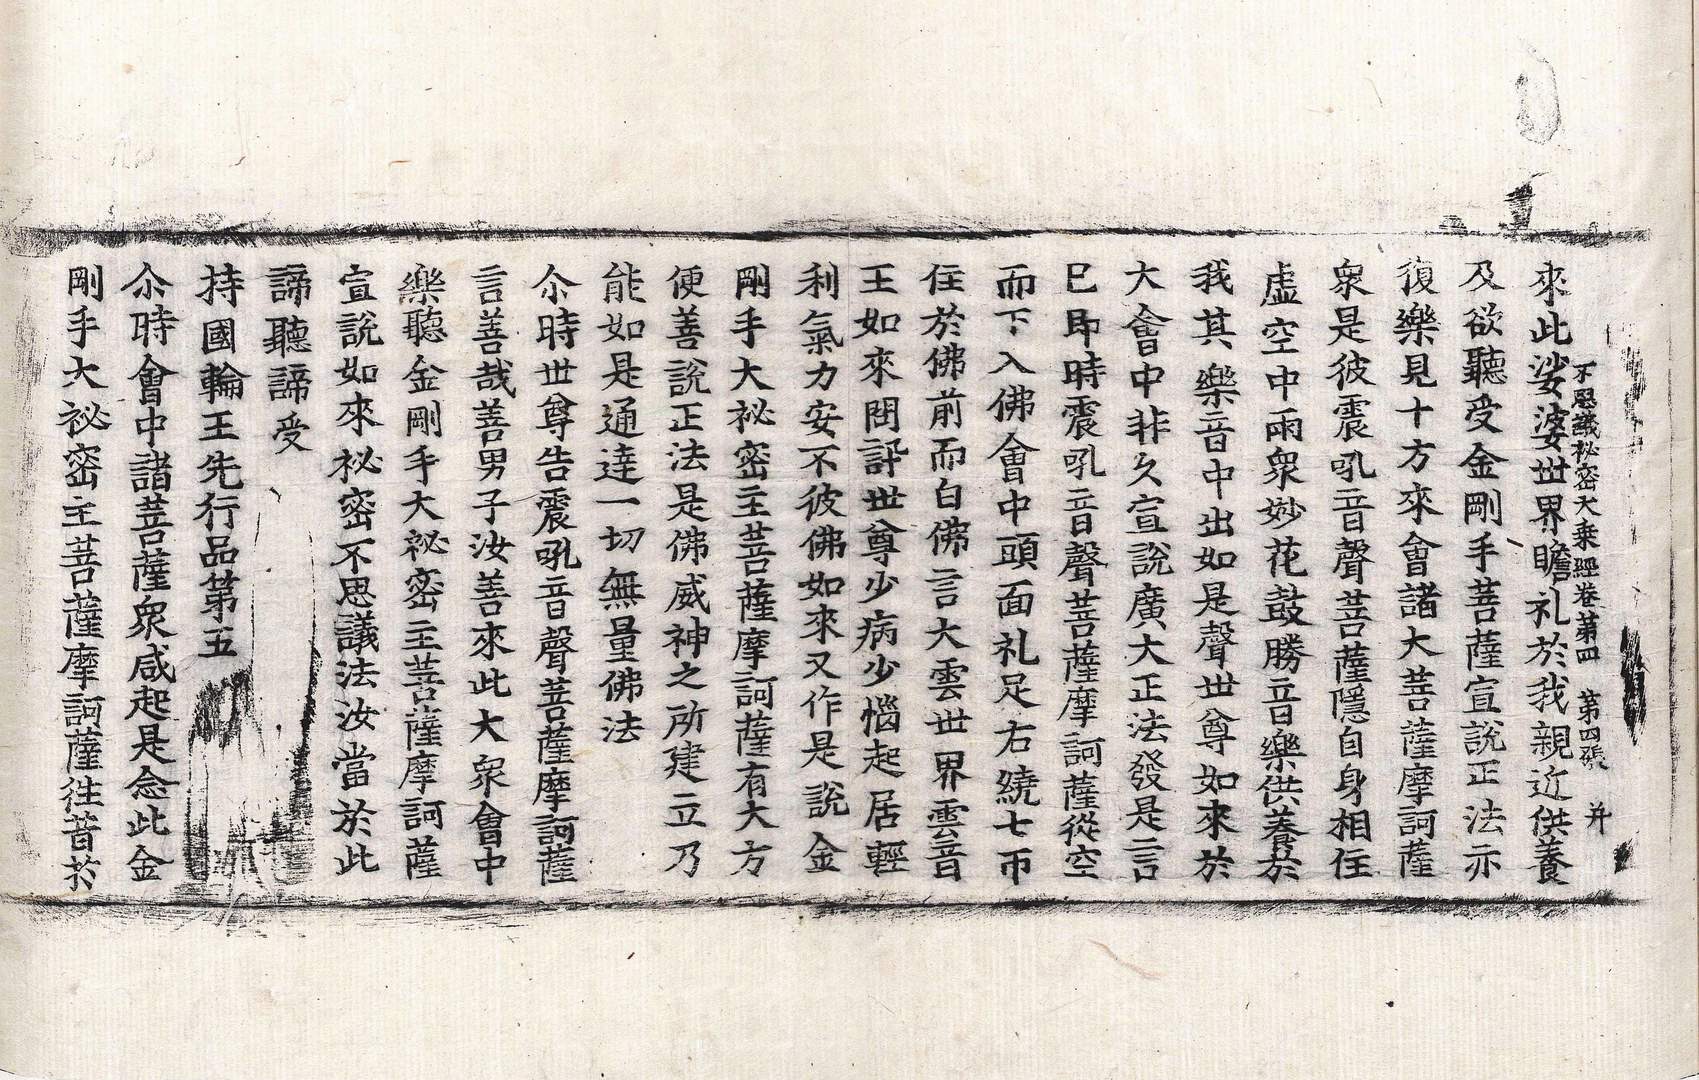 不思議祕密大乘經卷第四　第四張　并
來此娑婆世界瞻礼於我親近供養
及欲聽受金剛手菩薩宣說正法亦
復樂見十方來會諸大菩薩摩訶薩
衆是彼震吼音聲菩薩隱自身相住
虛空中雨衆妙花鼓勝音樂供養於
我其樂音中出如是聲世尊如來於
大會中非久宣說廣大正法發是言
已即時震吼音聲菩薩摩訶薩從空
而下入佛會中頭面礼足右繞七帀
住於佛前而白佛言大雲世界雲音
王如來問訊世尊少病少惱起居輕
利氣力安不彼佛如來又作是說金
剛手大祕密主菩薩摩訶薩有大方
便善說正法是佛威神之所建立乃
能如是通達一切無量佛法
尒時世尊告震吼音聲菩薩摩訶薩
言善哉善男子汝善來此大衆會中
樂聽金剛手大祕密主菩薩摩訶薩
宣說如來祕密不思議法汝當於此
諦聽諦受
持國輪王先行品第五
尒時會中諸菩薩衆咸起是念此金
剛手大祕密主菩薩摩訶薩往昔於